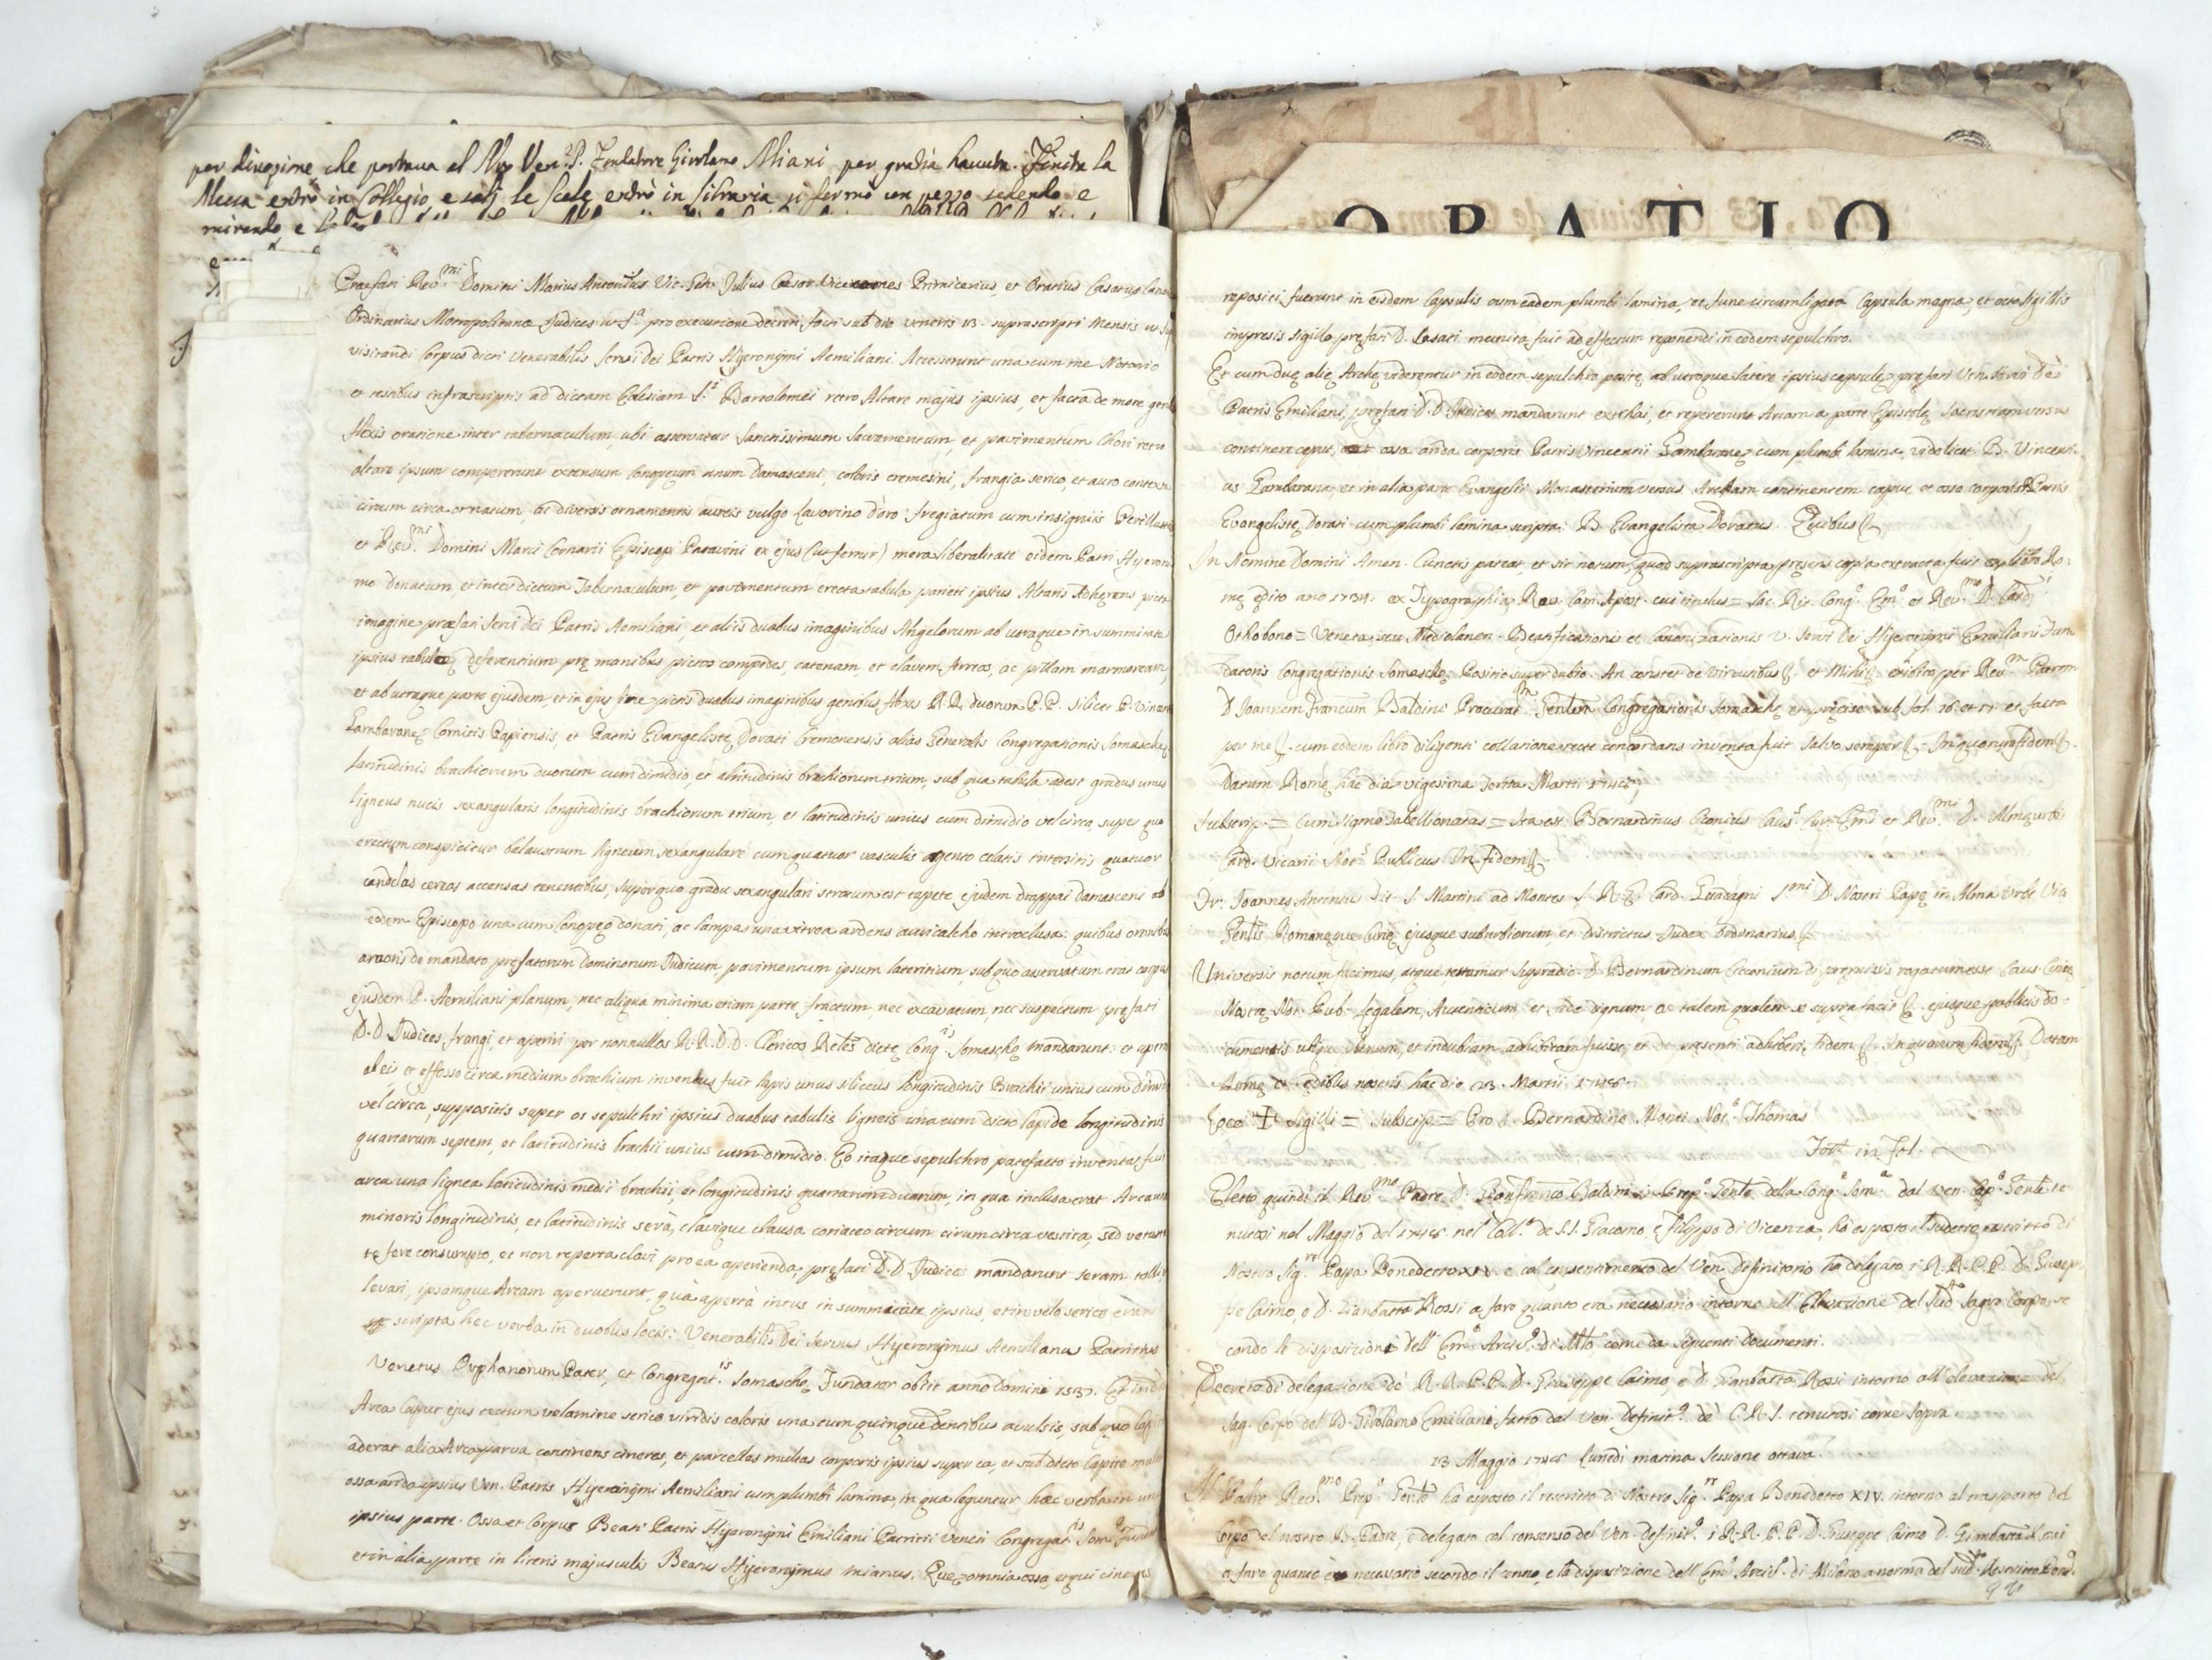 per divozione che portava al Ven. P. Fondatore Girolamo Miani per gratia havuta. Finita la
Messa entrò in Collegio, e salì le scale entrò in libraria si fermò un pezzo sedendo e
mirando e
ORATIO
Praefati Rev.mi Domini Marius Antonius Vic. Julius Caesar Vicecomes Primicerius, et Orarius Casatus
Ordinarius Metropolitanae Judices ut s.a pro executione decreti facti sub die veneris 13. suprascripti mensis
visitandi Corpus dicti Venerabilis servi dei Patris Hyeronymi Aemiliani Accesserunt una cum me Notario
et testibus infrascriptis ad dictam Ecclesiam S.i Bartolomei retro Altare majus ipsius, et facta de more
flexis oratione inter tabernaculum, ubi asservatur Sanctissimum Sacramentum, et pavimentum Chori retro
altare ipsum compererunt extensum Conopeum unum Damasceni, coloris cremesini, frangia serico, et auro
circum circa ornatum, ac diversis ornamentis aureis vulgo Lavorino d'oro fregiatum cum insigniis Perillustris
et Rev.mi Domini Marci Cornarii Episcopi Patavini ex ejus (ut fertur) mera liberalitate eidem Patri
donatum, et inter dictum Tabernaculum, et pavimentum erecta tabula parieti ipsius Altaris adherens
imagine praefati Servi Dei Patris Aemiliani, et aliis duabus imaginibus Angelorum ab utraque in summitate
ipsius tabulae deferentium prę manibus pictos compedes, catenam, et clavem ferreos, ac pillam marmoream,
et ab utraque parte ejusdem et in ejus fine pictis duabus imaginibus genibus flexis R.R. duorum P.P. silicet P.
Gambaranę Comitis Papiensis, et Patris Evangelistę Dorati Cremonensis alias Generalis Congregationis Somaschę,
latitudinis brachiorum duorum cum dimidio, et altitudinis brachiorum trium, sub qua tabula adest gradus unus
ligneus nucis sexangularis longitudinis brachiorum trium, et latitudinis unius cum dimidio vel circa, super quo
erectum conspicitur belaustrum ligneum sexangulare cum quatuor vasculis argento celatis intersitis quatuor
candelas cereas accensas tenentibus, super quo gradu sexangulari stratum est tapete ejusdem drappi damasceni ab
eodem Episcopo una cum Conopęo donati, ac lampas una vitrea ardens auricalcho introclusa: quibus
amotis de mandato pręfatorum Dominorum Judicum, pavimentum ipsum lateritium, sub quo asservatum erat corpus
ejusdem P. Aemiliani planum, nec aliqua minima etiam parte fractum, nec excavatum, nec suspectum pręfati
D.D. Judices, frangi, et aperiri per nonnullos R.R.D.D. Clericos Reles dictę Cong.is Somaschę mandarunt: et
et effosso circa medium brachium inventus fuit lapis unus siliceus longitudinis Brachii unius cum
vel circa, suppositis super os sepulchri ipsius duabus tabulis ligneis una cum dicto lapide longitudinis
quartarum septem, et latitudinis brachii unius cum dimidio. Eo itaque sepulchro patefacto inventa
arca una lignea latitudinis medii brachii, et longitudinis quartarum duarum, in qua inclusa erat Arca
minoris longitudinis, et latitudinis sera, clavique clausa coriaceo circum circumcirca vestita, sed
fere consumpto, et non reperta clavi pro ea aperienda, pręfati D.D. Judices mandarunt seram
levari, ipsamque Arcam aperuerunt, quâ apertâ intus in summitate ipsius, et in velo serico
scripta hęc verba in duobus locis: Venerabilis Dei Servus Hyeronymus Aemilianus Patritius
Venetus Orphanorum Pater, et Congregat.is Somaschę Fundator obiit anno Domini 1537. Et
Arca Caput ejus tectum velamine serico viridis coloris una cum quinque dentibus avulsis, sub quo
aderat alia Arca parva continens cineres, et parcellas multas corporis ipsius super ea, et sub dicto Capite
ossa arida ipsius Ven. Patris Hyeronymi Aemiliani cum plumbi lamina, in qua leguntur haec verba in
ipsius parte. Ossa et Corpus Beati Patris Hyeronymi Emiliani Patritii Veneti Congregat.is Som.
et in alia parte in literis majusculis Beatus Hyeronymus Mianus. Quę omnia ossa, et cineres
repositi fuerunt in eisdem Capsulis cum eadem plumbi lamina, et fune circumligata Capsula magna, et octo sigillis
impressis sigillo pręfati D. Casati munita fuit ad effectum reponendi in eodem sepulchro.
Et cum duę alię Archę viderentur in eodem sepulchro positę ab utroque latere ipsius capsulę pręfati Ven. Servi Dei
Patris Emiliani, pręfati D.D. Judices mandarunt extrahi, et repererunt Arcam a parte Epistolę Sacristiam versus
continere caput, et ossa arida corporis Patris Vincentii Gambaranę cum plumbi lamina, videlicet B. Vincenti-
us Gambarana, et in alia parte Evangelii Monasterium versus Archam continentem caput, et ossa corporis Patris
Evangelistę Dorati cum plumbi lamina scripta: B. Evangelista Doratus. Quibus
In Nomine Domini Amen. Cunctis pateat, et sit notum, quod suprascripta pręsens copia extracta fuit ex libro Ro-
mę edito ano 1734. ex Typographia Rev. Cam. Apost. cui titulus = Sac. Rit. Cong.e Em.o et Rev.mo D. Card.
Othobono = Veneta, seu Mediolanen. Beatificationis et Canonizationis V. Servi Dei Hyeronymi Emiliani Fun-
datoris Congregationis Somaschę: Positio super dubio. An constet de Virtutibus et Mihi exibito per Rev.m Patrem
D. Joannem Francum Baldini Procurat. Gen.lem Congregationis Somaschę et pręcise sub fol. 16. et 17. et facta
per me cum eodem libro diligenti collatione recte concordans inventa fuit salvo semper In quorum fidem.
Datum Romę hac die vigesima tertia Martii 1748.
Subscrip. = Cum signo Tabellionatus = Ita est Bernardinus Ciconius Caus.s Cur. Em.i et Rev.mi D. Almę Urbis
Card. Vicarii Not.s Publicus In fidem.
Fr. Joannes Antonius Tit. S. Martini ad Montes S.R.E. Card. Guadagni S.mi D. Nostri Papę in Alma Urbe Vic.
Gen.lis Romanęque Curię, ejusque suburbiorum, et Districtus Judex Ordinarius.
Universis notum facimus, atque testamur supradic. D. Bernardinum Ciconium de pręmissis rogatum esse Caus. Curię
Nostrę Not. Pub. legalem, Autenticum, et fide dignum, ac talem qualem se supra facit ejusque publicis do-
cumentis adhibitam fuisse, et de presenti adhiberi fidem. In quorum fidem. Datum
Romę ex ędibus nostris hac die 23. Martii 1748.
Loco + Sigilli = Subscrip. = Pro D. Bernardino Monti Not.o Thomas
in fol.
Eletto quindi il Rev.mo Padre D. Gianfranco Baldini in Prep.o Gen.le della Cong.e Som.a dal Ven. Cap.o Gen.le te-
nutosi nel Maggio del 1748. nel Coll.o de S.S. Giacomo, e Filippo di Vicenza, hà esposto il sudetto rescritto di
Nostro Sig.re Papa Benedetto XIV. e col consentimento del Ven. Definitorio ha delegato i R.R.P.P. D. Giusep-
pe Caimo, e D. Gianbatta Rossi a fare quanto era necessario intorno all'Elevazione del sud.o Sagro Corpo, se-
condo le disposizioni dell'Em.o Arciv.o di Mil.o, come da seguenti documenti.
Decreto di delegazione de' R.R.P.P. D. Giuseppe Caimo, e D. Gianbatta Rossi intorno all'elevazione del
Sag. Corpo del B. Girolamo Emiliani fatto dal Ven. Definit.o de' C.R.S. tenutosi come sopra
13 Maggio 1748. Lunedì matina Sessione ottava.
Il Padre Rev.mo Prep.o Gen.le ha esposto il rescritto di Nostro Sig.re Papa Benedetto XIV. intorno al trasporto del
Corpo del nostro B. Padre, e delegato col consenso del Ven. Definit.o i R.R.P.P. D. Giuseppe Caimo D. Gianbatta Rossi
a fare quanto è necessario secondo il cenno, e la disposizione dell'Em.o Arciv. di Milano a norma del sud.o Rescritto